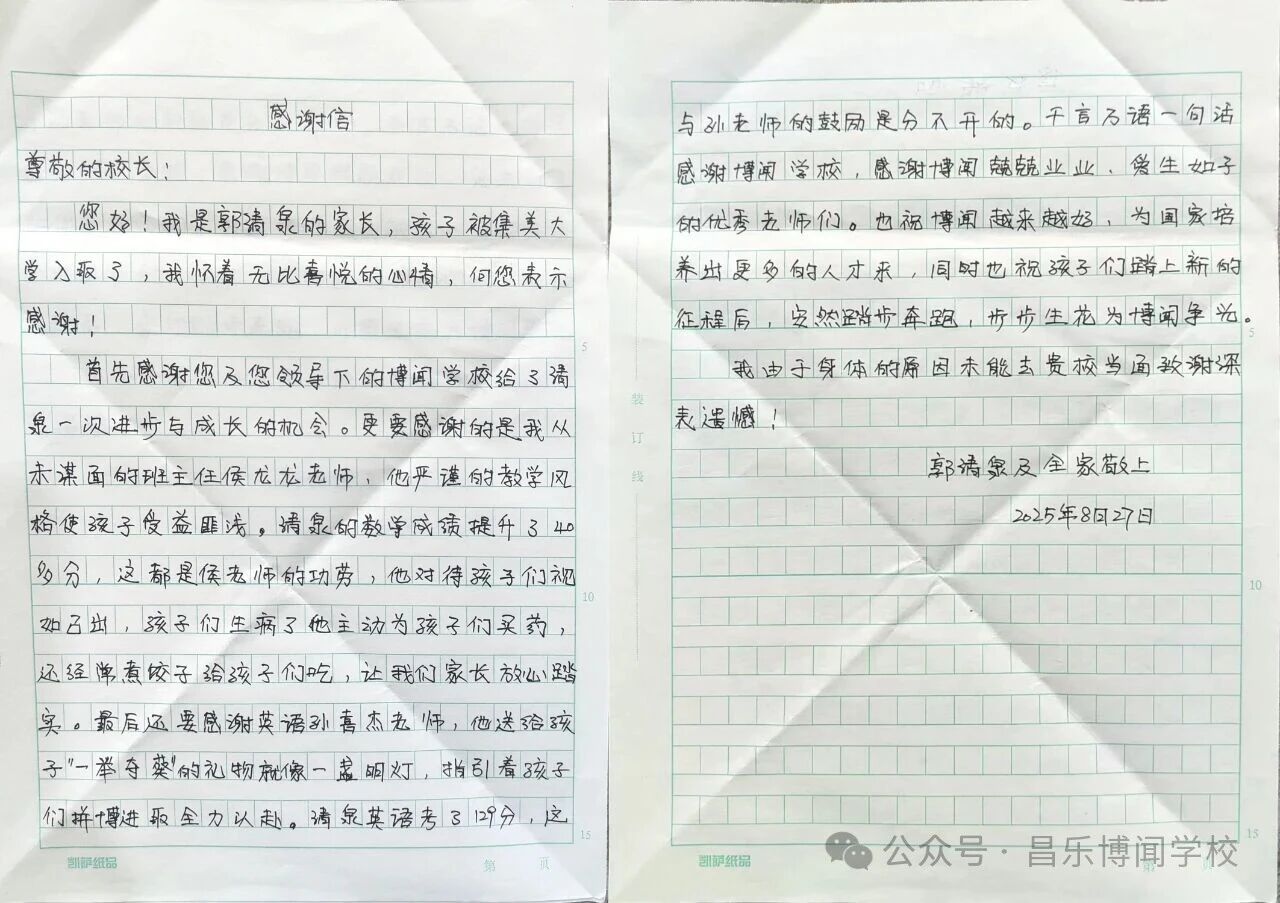 感谢信
尊敬的校长：
您好！我是郭清泉的家长，孩子被集美大
学入取了，我怀着无比喜悦的心情，向您表示
感谢！
首先感谢您及您领导下的博闻学校给了清
泉一次进步与成长的机会。更要感谢的是我从
未谋面的班主任侯龙龙老师，他严谨的教学风
格使孩子受益匪浅。清泉的数学成绩提升了40
多分，这都是侯老师的功劳，他对待孩子们视
如己出，孩子们生病了他主动为孩子们买药，
还经常煮饺子给孩子们吃，让我们家长放心踏
实。最后还要感谢英语孙喜杰老师，他送给孩
子"一举夺葵"的礼物就像一盏明灯，指引着孩子
们拼博进取全力以赴。清泉英语考了129分，这
5
10
15
凯萨纸品
第 页
与孙老师的鼓励是分不开的。千言万语一句话
感谢博闻学校，感谢博闻兢兢业业、爱生如子
的优秀老师们。也祝博闻越来越好、为国家培
养出更多的人才来，同时也祝孩子们踏上新的
征程后，安然踏步奔跑，步步生花为博闻争光。
我由于身体的原因未能去贵校当面致谢深
表遗憾！
郭清泉及全家敬上
2025年8月27日
装订线
5
10
15
凯萨纸品
第 页
公众号·昌乐博闻学校